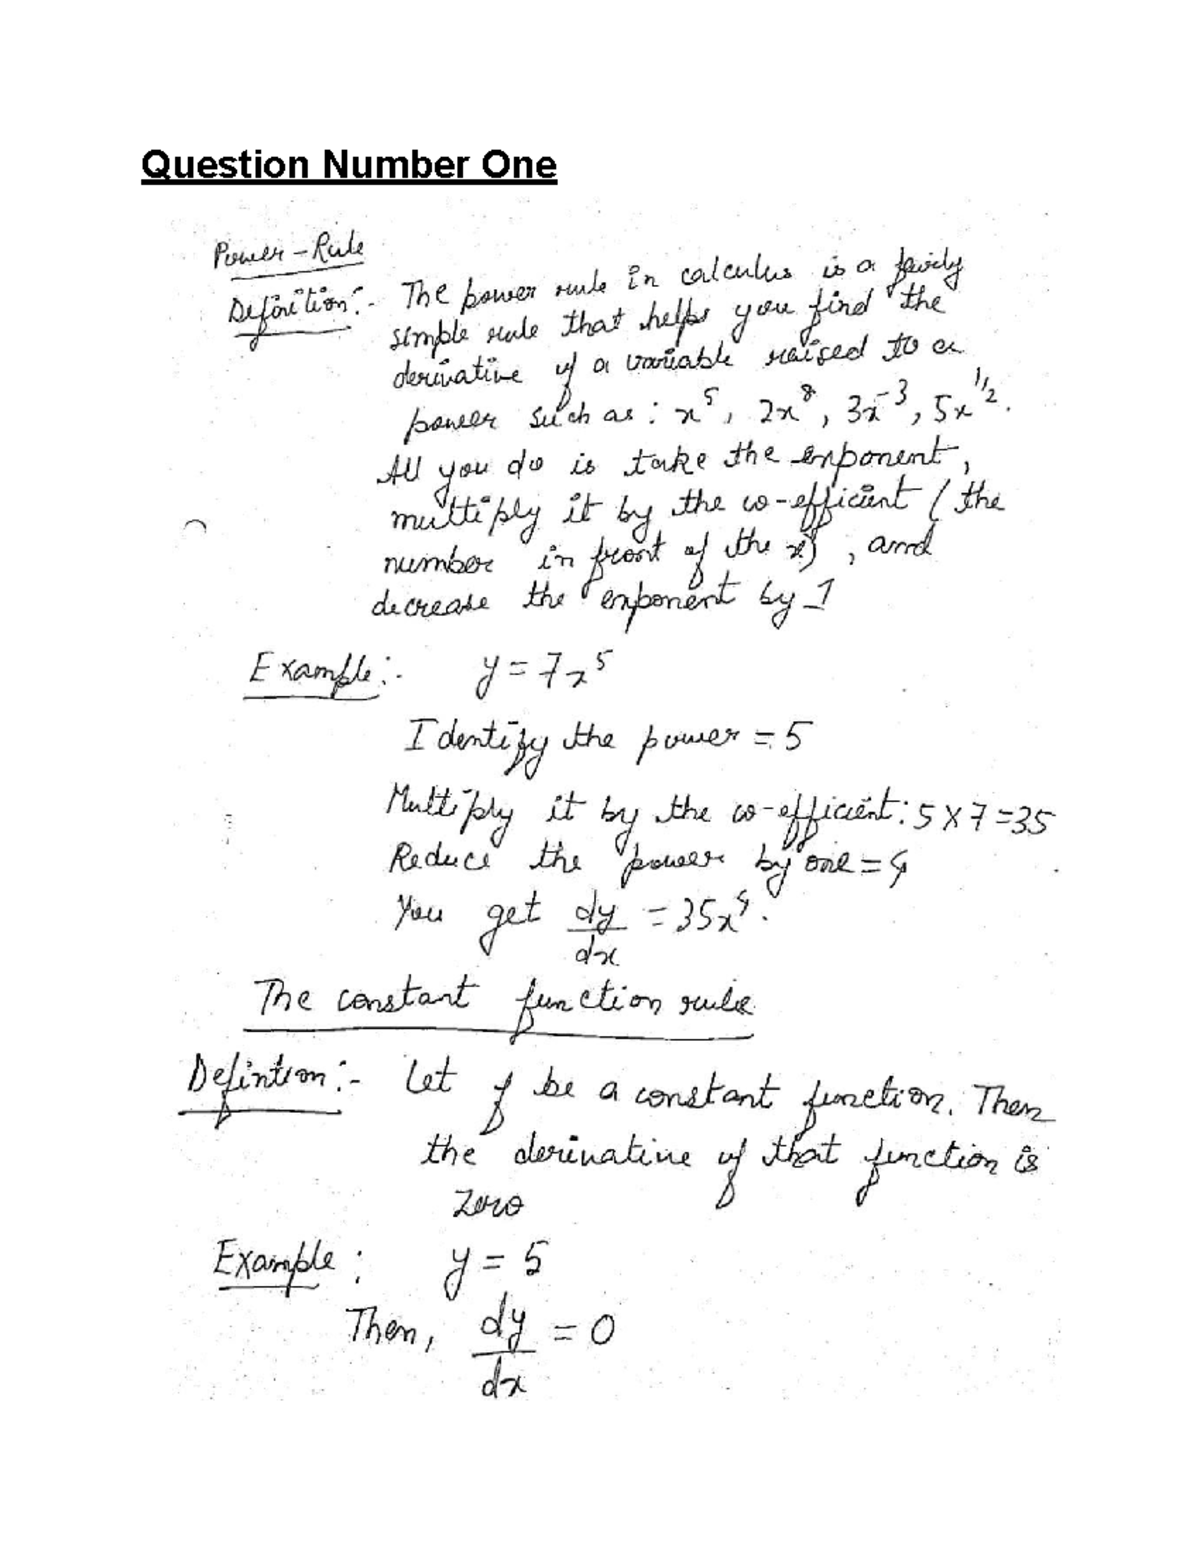 Question Number One
Power-Rule
Definition:- The power rule in calculus is a fairly
simple rule that helps you find the
derivative of a variable raised to a
power such as: x⁵, 2x⁸, 3x⁻³, 5x^1/2.
All you do is take the exponent,
multiply it by the co-efficient (the
number in front of the x), and
decrease the exponent by 1
Example:- y = 7x⁵
Identify the power = 5
Multiply it by the co-efficient: 5 X 7 = 35
Reduce the power by one = 4
You get dy/dx = 35x⁴.
The constant function rule
Defintion:- Let f be a constant function. Then
the derivative of that function is
zero
Example: y = 5
Then, dy/dx = 0